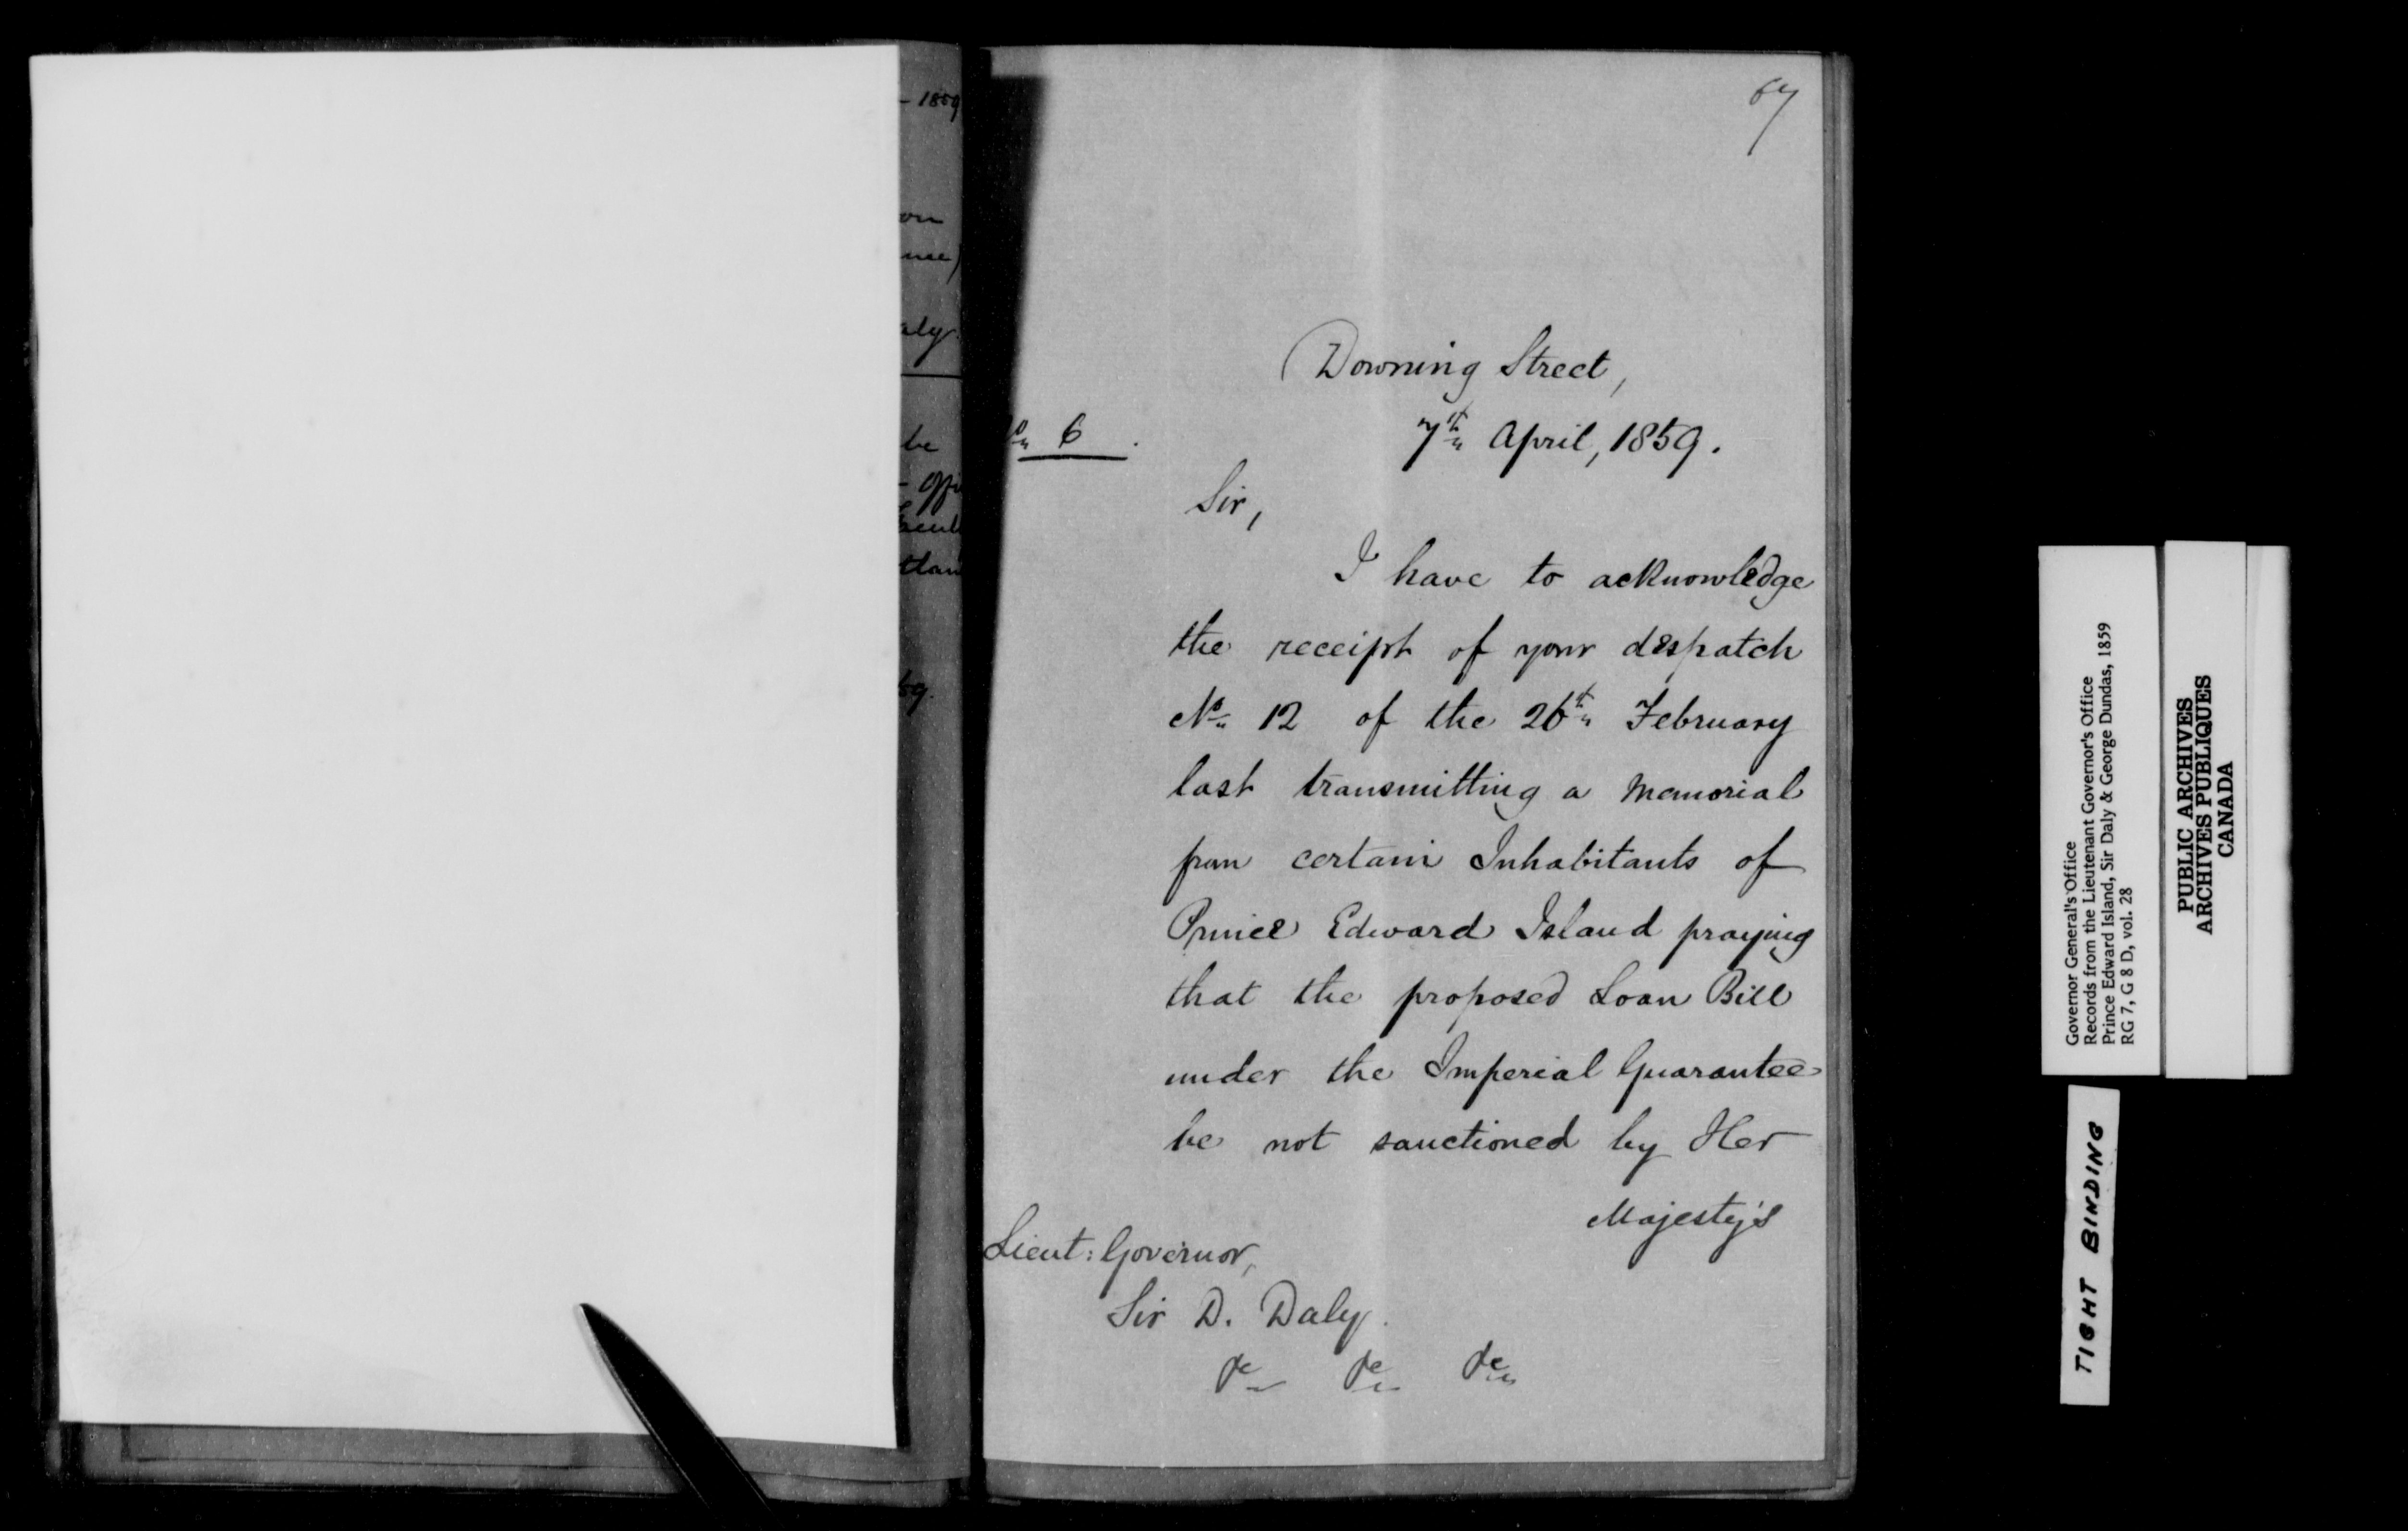 - 1859
aly.
be
67
Downing Street,
No 6.
7th April, 1859.
Sir,
I have to acknowledge
the receipt of your despatch
No 12 of the 26th February
last transmitting a Memorial
from certain Inhabitants of
Prince Edward Island praying
that the proposed Loan Bill
under the Imperial Guarantee
be not sanctioned by Her
Majesty's
Lieut: Governor,
Sir D. Daly.
&c &c &c
Governor General's Office
Records from the Lieutenant Governor's Office
Prince Edward Island, Sir Daly & George Dundas, 1859
RG 7, G 8 D, vol. 28
PUBLIC ARCHIVES
ARCHIVES PUBLIQUES
CANADA
TIGHT BINDING